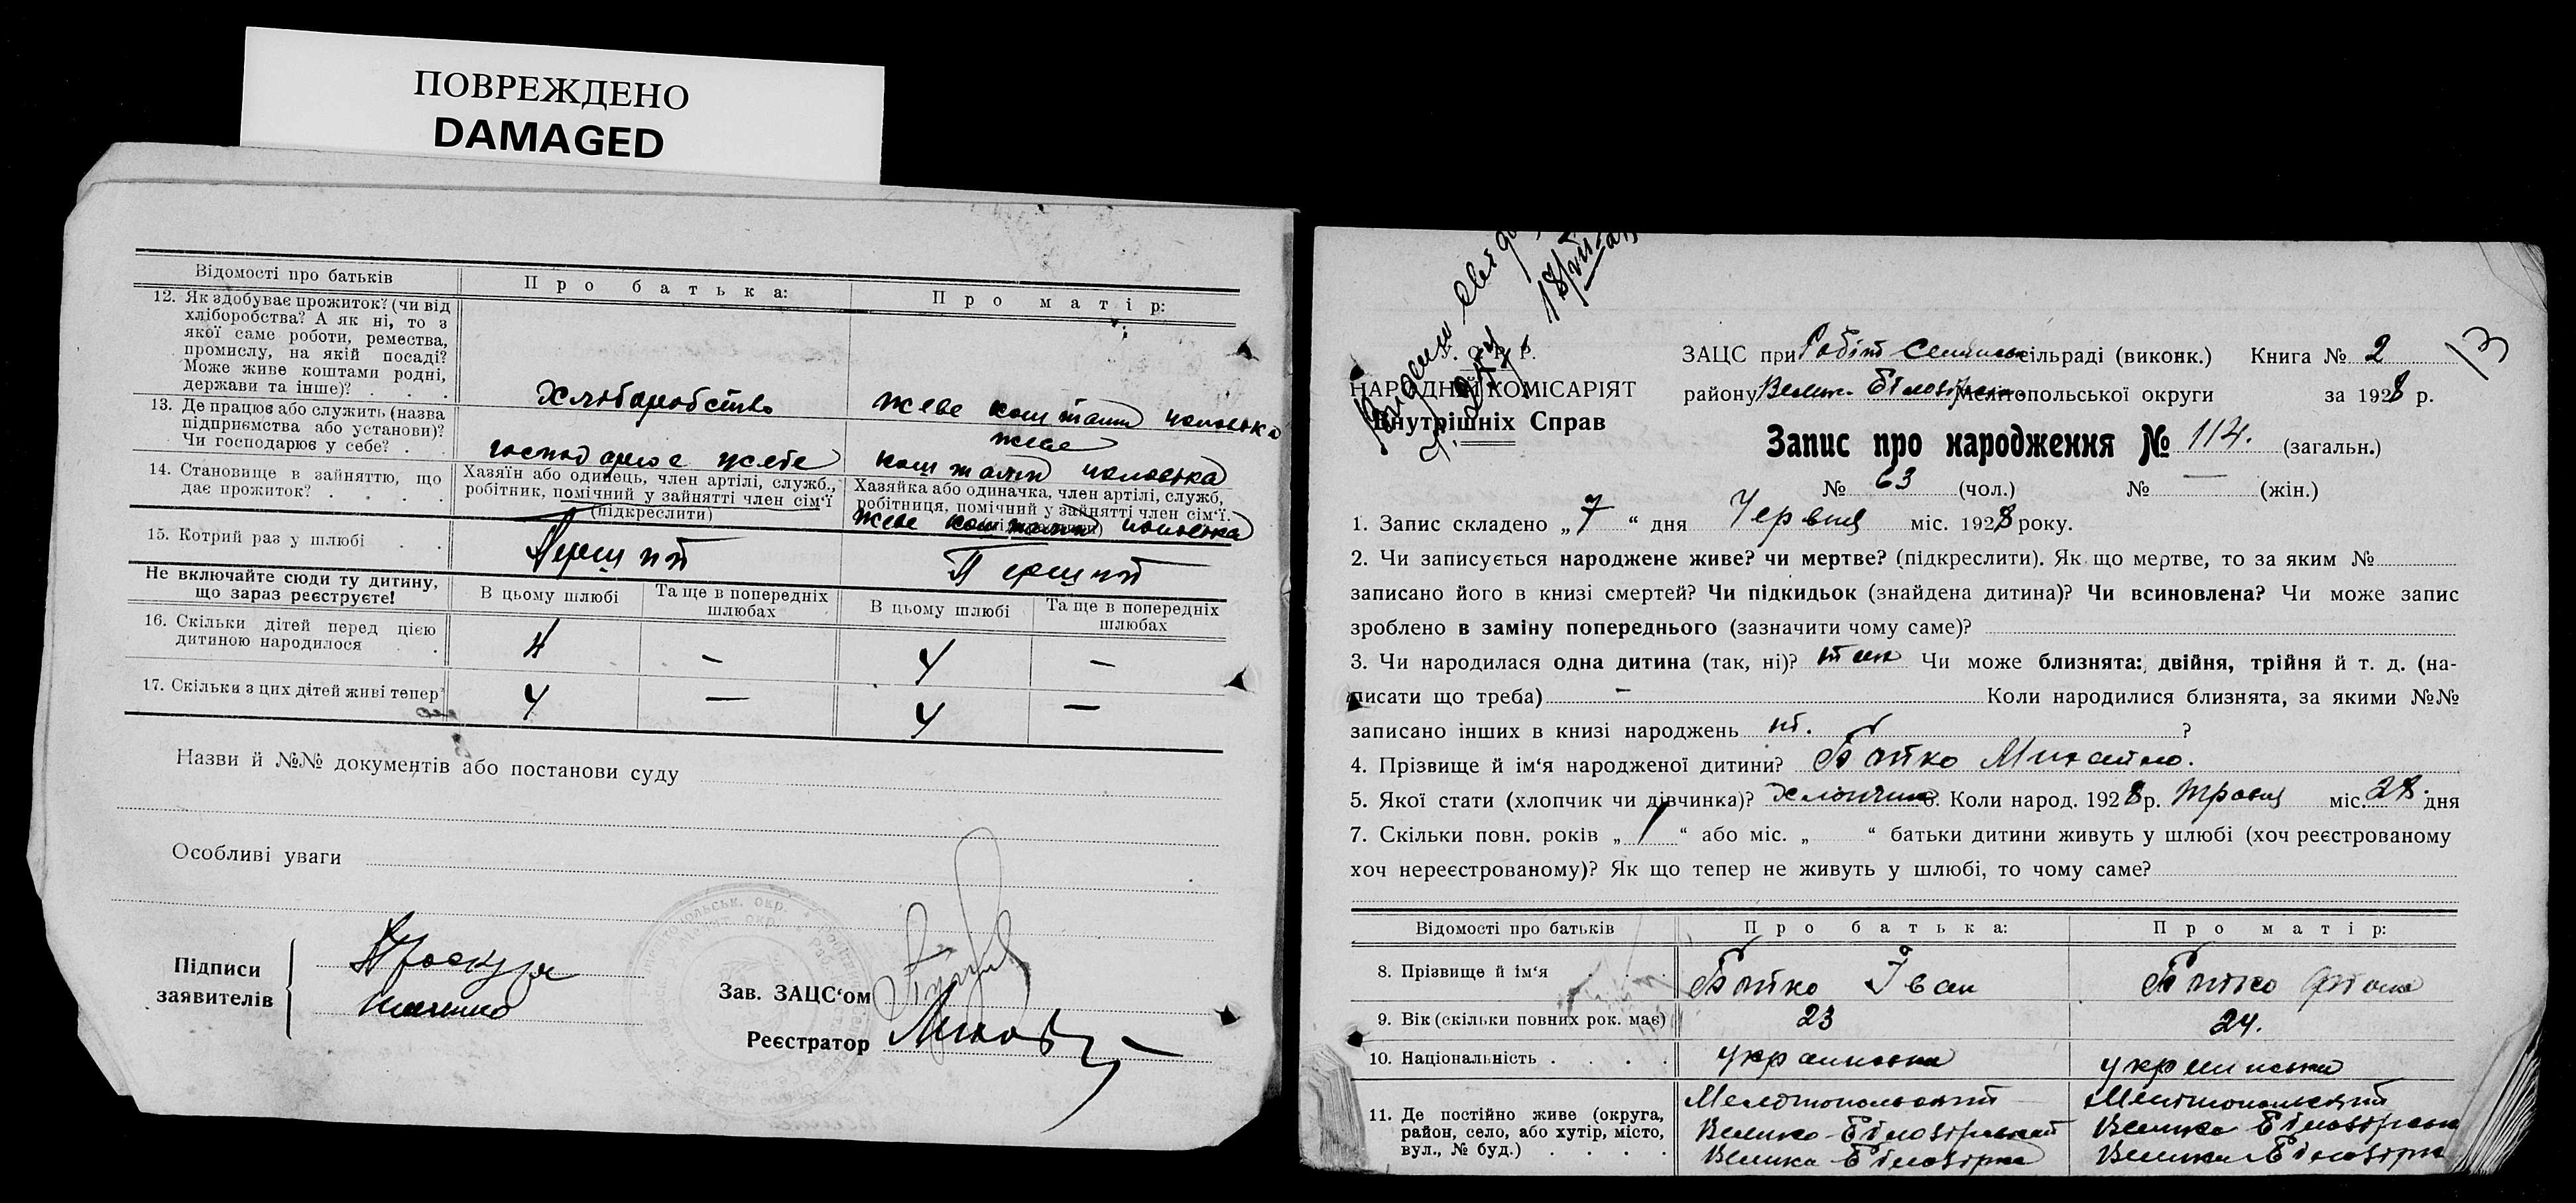 ПОВРЕЖДЕНО
DAMAGED
Відомості про батьків
Про батька:
Про матір:
12. Як здобуває прожиток? (чи від
хліборобства? А як ні, то з
якої саме роботи, ремества,
промислу, на якій посаді?
Може живе коштами родні,
держави та інше)? . . .
Хліборобство
живе коштами чоловіка
13. Де працює або служить (назва
підприємства або установи)?
Чи господарює у себе? .
господарює
живе
коштами чоловіка
14. Становище в зайняттю, що
дає прожиток? . . . .
Хазяїн або одинець, член артілі, служб.,
робітник, помічний у зайнятті член сім'ї
(підкреслити)
Хазяйка або одиначка, член артілі, служб,
робітниця, помічний у зайнятті член сім'ї.
живе коштами чоловіка
15. Котрий раз у шлюбі . .
Перший
Перший
Не включайте сюди ту дитину,
що зараз реєструєте!
В цьому шлюбі
Та ще в попередніх
шлюбах
В цьому шлюбі
Та ще в попередніх
шлюбах
16. Скільки дітей перед цією
дитиною народилося . .
4 — 4 —
17. Скільки з цих дітей живі тепер
4 — 4 —
Назви й №№ документів або постанови суду
Особливі уваги
Підписи
заявителів
Зав. ЗАЦС'ом
Реєстратор
18/VIII
НАРОДНІЙ КОМІСАРІЯТ
Внутрішніх Справ
ЗАЦС при сільраді (виконк.) Книга № 2
13
району Велик. Білозірськ. Мелітопольської округи за 1928 р.
Запис про народження № 114. (загальн.)
№ 63 (чол.) № — (жін.)
1. Запис складено „7“ дня Червня міс. 1928 року.
2. Чи записується народжене живе? чи мертве? (підкреслити). Як що мертве, то за яким №
записано його в книзі смертей? Чи підкидьок (знайдена дитина)? Чи всиновлена? Чи може запис
зроблено в заміну попереднього (зазначити чому саме)?
3. Чи народилася одна дитина (так, ні)? так Чи може близнята: двійня, трійня й т. д. (на-
писати що треба) — Коли народилися близнята, за якими №№
записано інших в книзі народжень ні. ?
4. Прізвище й ім'я народженої дитини? Бойко Михайло.
5. Якої стати (хлопчик чи дівчинка)? хлопчик 6. Коли народ. 1928 р. травня міс. 28. дня
7. Скільки повн. років „1“ або міс. „ “ батьки дитини живуть у шлюбі (хоч реєстрованому
хоч нереєстрованому)? Як що тепер не живуть у шлюбі, то чому саме?
Відомості про батьків
Про батька:
Про матір:
8. Прізвище й ім'я . . .
Бойко Іван
Бойко
9. Вік (скільки повних рок. має)
23
24.
10. Національність . . . .
українська
українська
11. Де постійно живе (округа,
район, село, або хутір, місто,
вул., № буд.) . . . .
Мелітопольський
Велико-Білозірський
Велика Білозірка
Мелітопольський
Велико Білозірськ
Велика Білозірка